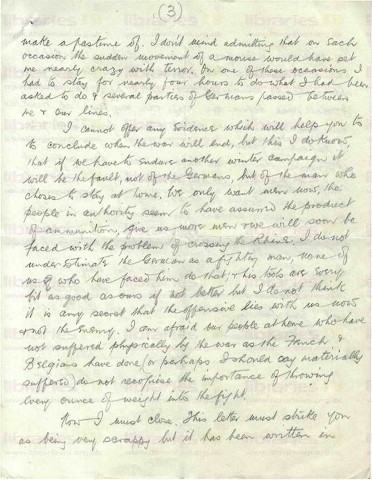 (3)
make a pastime of. I don't mind admitting that on each
occasion the sudden movement of a mouse would have set
me nearly crazy with terror. On one of these occasions I
had to stay for nearly four hours to do what I had been
asked to do & several parties of Germans passed between
me & our lines.
I cannot offer any evidence which will help you to
to conclude when the war will end, but this I do know,
that if we have to endure another winter campaign it
will be the fault, not of the Germans, but of the man who
choses to stay at home. We only want men now, the
people in authority seem to have assured the product
of ammunition, give us more men & we will soon be
faced with the problem of crossing the Rhine. I do not
underestimate the German as a fighting man, none of
us who have faced him do that, & his tools are every
bit as good as ours if not better but I do not think
it is any secret that the offensive lies with us now
& not the enemy. I am afraid our people at home who have
not suffered physically by the war as the French &
Belgians have done (or perhaps I should say materially
suffered) do not recognise the importance of throwing
every ounce of weight into the fight.
Now I must close. This letter must strike you
as being very scrappy but it has been written in